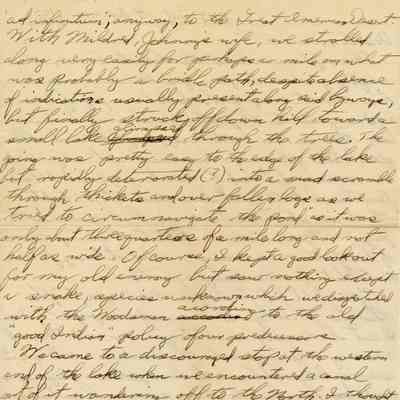 ad infinitum", anyway, to the Great American Desert.
With Mildred, Johnny's wife, we strolled
along very easily for perhaps a mile on what
was probably a bridle path, despite absence
of indications usually present along said byways,
but finally struck off down hill toward a
small lake glimpsed through the trees. The
going was pretty easy to the edge of the lake
but rapidly deteriorated (?) into a mad scramble
through thickets and over fallen logs as we
tried to circumnavigate the "pond" as it was
only about three quarters of a mile long and not
half as wide. Of course, I kept a good lookout
for my old enemy but saw nothing except
a snake, species unknown, which we dispatched
with the Woodsman according to the old
"good Indian" policy of our predecessors.
We came to a discouraged stop at the western
end of the lake when we encountered a canal
out of it wandering off to the North. I thought